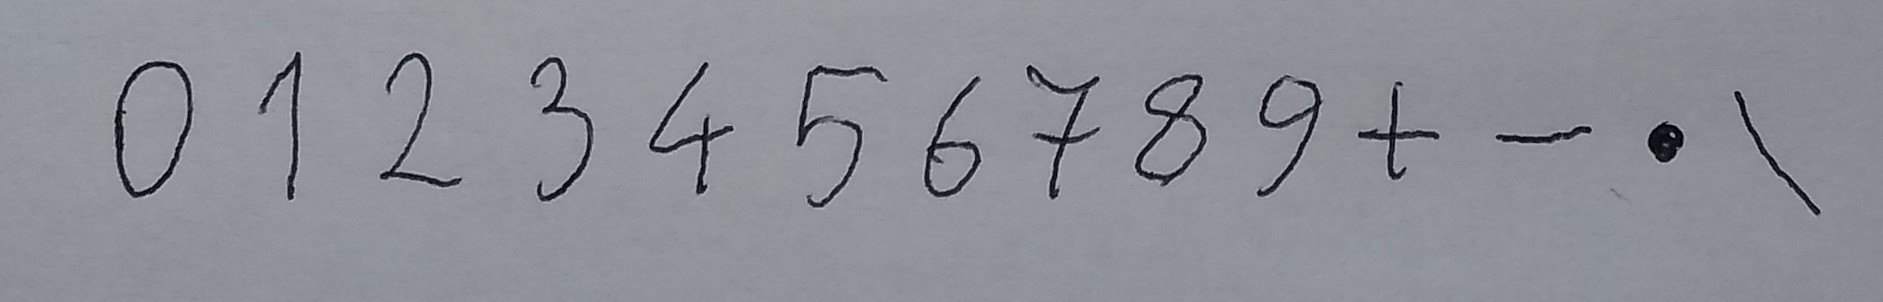 0 1 2 3 4 5 6 7 8 9 + - • \